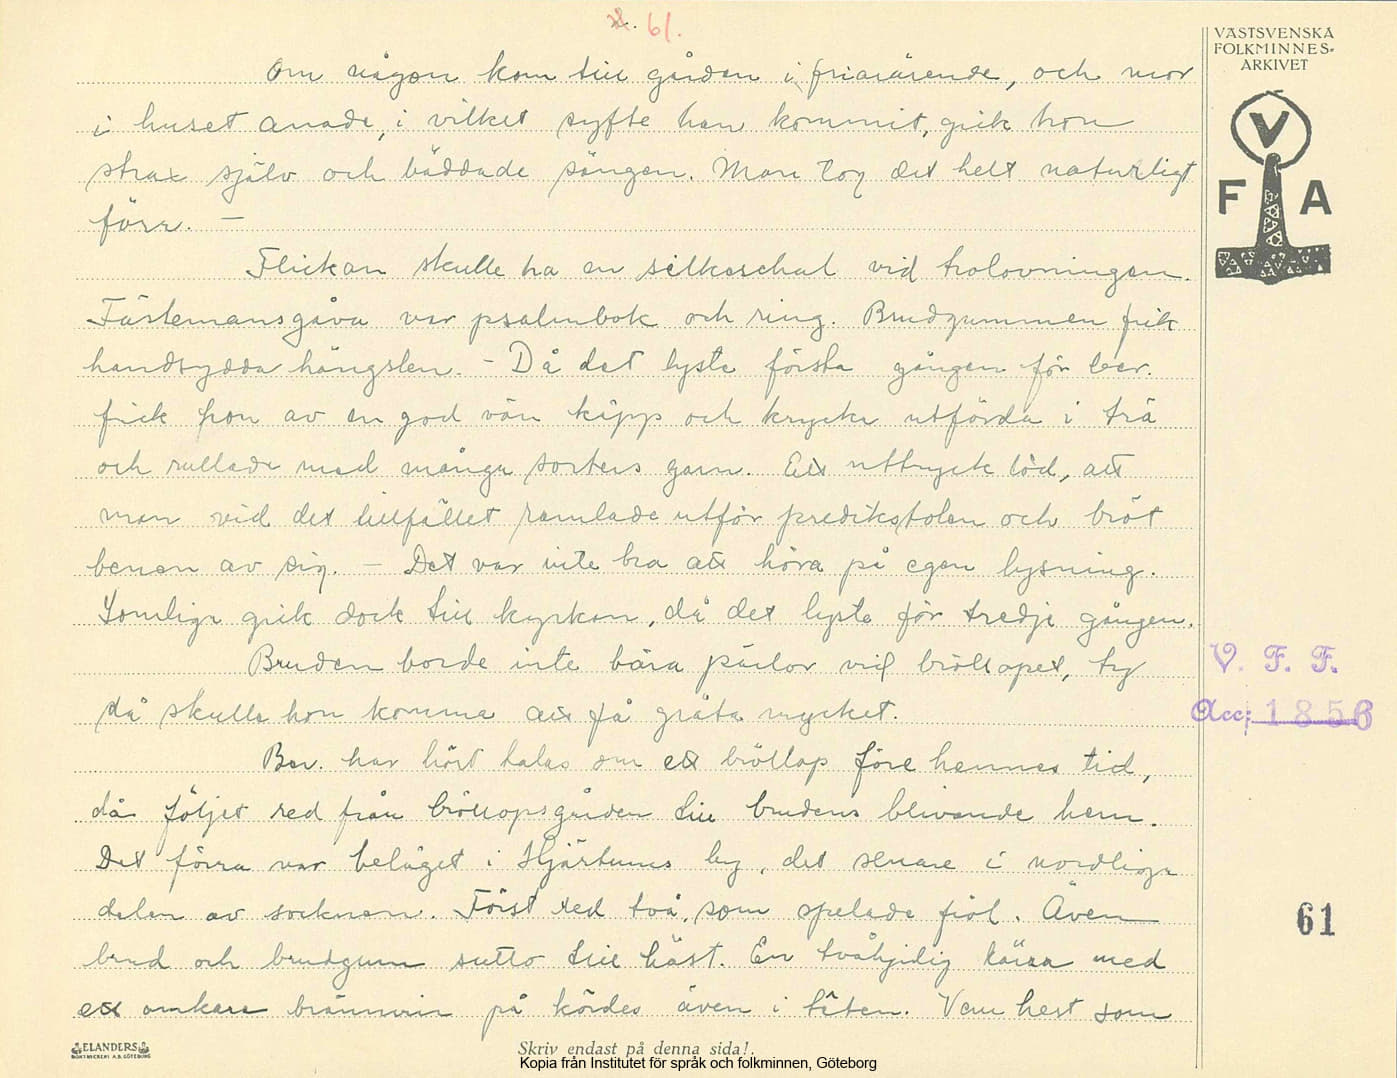 61.
VÄSTSVENSKA
FOLKMINNES-
ARKIVET
V
F A
Om någon kom till gården i friareärende, och mor
i huset anade, i vilket syfte han kommit, gick hon
strax själv och bäddade sängen. Man tog det helt naturligt
förr. —
Flickan skulle ha en silkeschal vid trolovningen.
Fästemansgåva var psalmbok och ring. Brudgummen fick
handsydda hängslen. – Då det lyste första gången för ber.
fick hon av en god vän käpp och krycka utförda i trä
och rullade med många sorters garn. Ett uttryck löd, att
man vid det tillfället ramlade utför predikstolen och bröt
benen av sig. – Det var inte bra att höra på egen lysning.
Somliga gick dock till kyrkan, då det lyste för tredje gången.
Bruden borde inte bära pärlor vid bröllopet, ty
då skulle hon komma att få gråta mycket.
Ber. har hört talas om ett bröllop före hennes tid,
då följet red från bröllopsgården till brudens blivande hem.
Det förra var beläget i Hjärtums by, det senare i nordliga
delen av socknen. Först red två, som spelade fiol. Även
brud och brudgum sutto till häst. En tvåhjulig kärra med
ett ankare brännvin på kördes även i täten. Vem helst som
V. F. F.
Acc: 1856
61
ELANDERS
BOKTRYCKERI A.B. GÖTEBORG
Skriv endast på denna sida!
Kopia från Institutet för språk och folkminnen, Göteborg